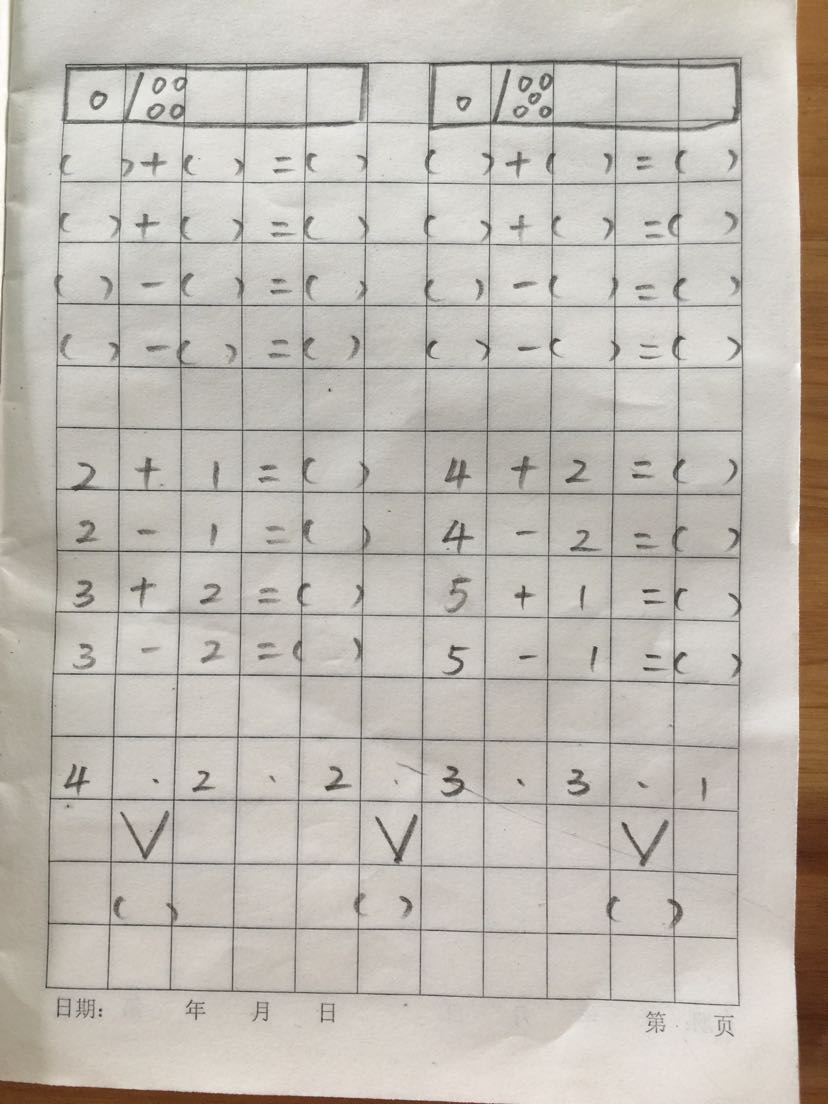 ( ) + ( ) = ( ) ( ) + ( ) = ( )
( ) + ( ) = ( ) ( ) + ( ) = ( )
( ) - ( ) = ( ) ( ) - ( ) = ( )
( ) - ( ) = ( ) ( ) - ( ) = ( )
2 + 1 = ( ) 4 + 2 = ( )
2 - 1 = ( ) 4 - 2 = ( )
3 + 2 = ( ) 5 + 1 = ( )
3 - 2 = ( ) 5 - 1 = ( )
4 . 2 . 2 . 3 . 3 . 1
V V V
( ) ( ) ( )
日期: 年 月 日 第 页